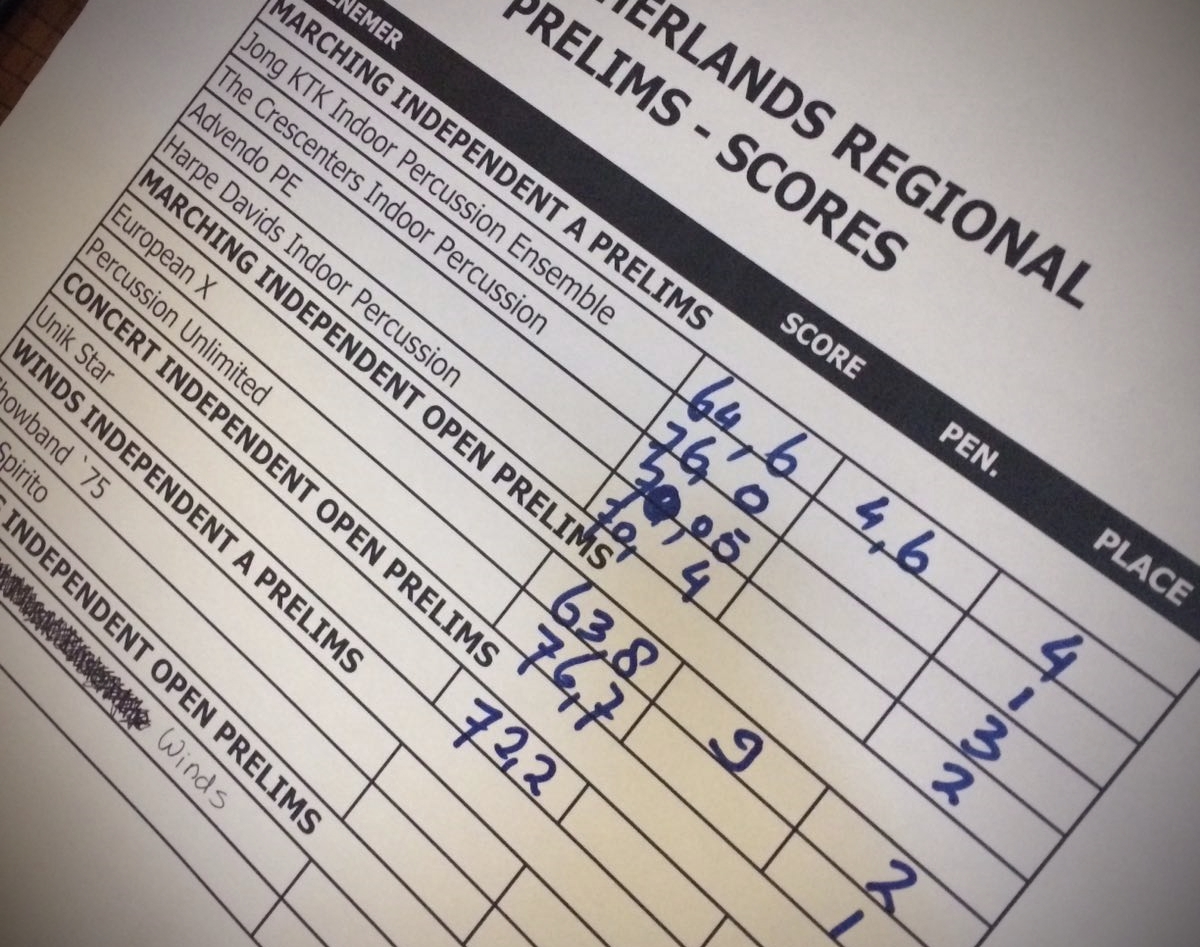 HERLANDS REGIONAL
PRELIMS - SCORES
ENEMER SCORE PEN. PLACE
MARCHING INDEPENDENT A PRELIMS
Jong KTK Indoor Percussion Ensemble 64,6 4,6 4
The Crescenters Indoor Percussion 76,0 1
Advendo PE 3
Harpe Davids Indoor Percussion 70,4 2
MARCHING INDEPENDENT OPEN PRELIMS
European X 63,8 9 2
Percussion Unlimited 76,7 1
CONCERT INDEPENDENT OPEN PRELIMS
Unik Star 72,2
WINDS INDEPENDENT A PRELIMS
howband `75
Spirito
INDEPENDENT OPEN PRELIMS
Winds